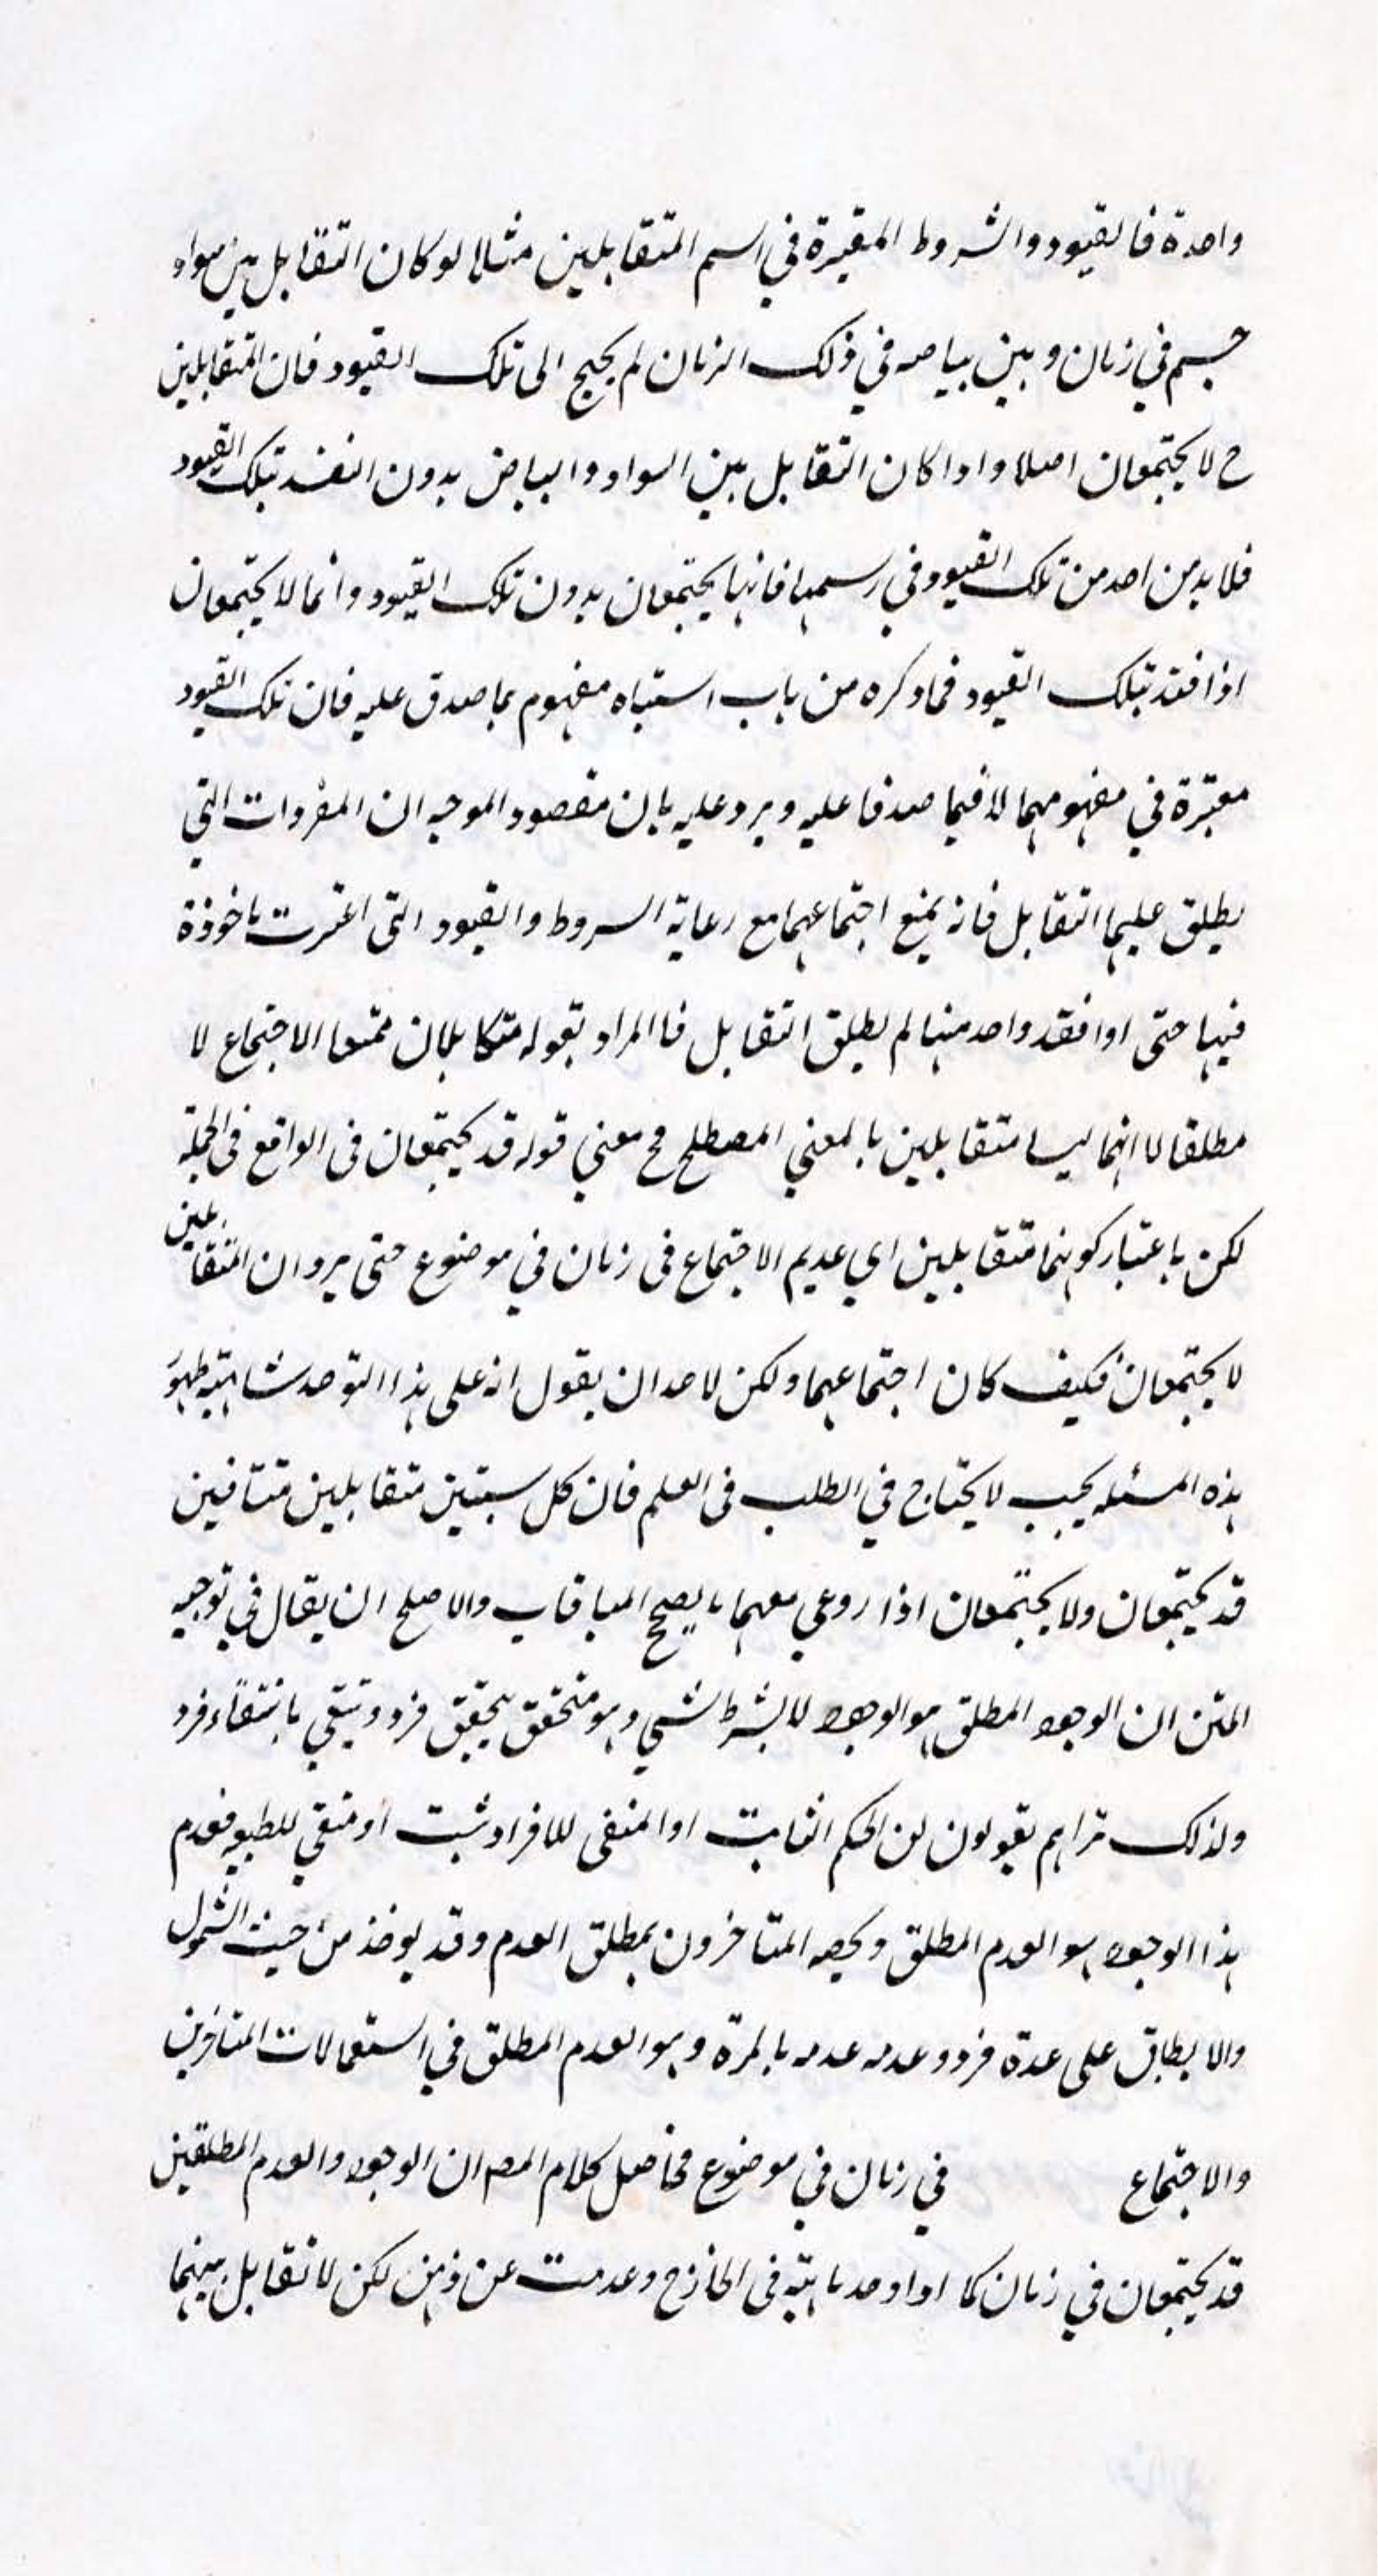 واحدة فالقيود والشروط المعتبرة في رسم المتقابلين مثلا لو كان التقابل بين سواد
جسم في زمان وبين بياضه في ذلك الزمان لم يحتج الى تلك القيود فان المتقابلين
ح لا يجتمعان اصلا واذا كان التقابل بين السواد والبياض بدون التقيد بتلك القيود
فلا بد من احد من تلك القيود في رسمهما فانهما يجتمعان بدون تلك القيود وانما لا يجتمعان
اذا قيد بتلك القيود فما ذكره من باب اشتباه مفهوم بما صدق عليه فان تلك القيود
معتبرة في مفهومهما لا فيما صدقا عليه ويرد عليه بان مقصود الموجه ان المفردات التي
يطلق عليها التقابل فانه يمنع اجتماعهما مع رعاية الشروط والقيود التي اعتبرت ماخوذة
فيها حتى اذا فقد واحد منها لم يطلق التقابل فالمراد بقوله متقابلان ممتنعا الاجتماع لا
مطلقا لا انهما ليسا متقابلين بالمعنى المصطلح فح معنى قوله قد يجتمعان في الواقع في الجملة
لكن باعتبار كونهما متقابلين اي عديم الاجتماع في زمان في موضوع حتى يرد ان المتقابلين
لا يجتمعان فكيف كان اجتماعهما ولكن لاحد ان يقول انه على هذا
هذه المسئلة بحيث لا يحتاج في الطلب في العلم فان كل شيئين متقابلين متنافيين
قد يجتمعان ولا يجتمعان اذا روعي معهما ما يصحح والاصلح ان يقال في توجيه
المتن ان الوجود المطلق هو الوجود لا بشرط شي وهو متحقق بتحقق فرد وينتفي بانتفاء فرد
ولذلك تراهم يقولون ان الحكم الثابت او المنفي للافراد ثبت او منفي للطبيعة فعدم
هذا الوجود هو العدم المطلق ويخصه المتاخرون بمطلق العدم وقد يوخذ من حيث الشمول
والانطباق على عدة فرد وعدمه عدمه بالمرة وهو العدم المطلق في استعمالات المتاخرين
والاجتماع في زمان في موضوع فحاصل كلام المص ان الوجود والعدم المطلقين
قد يجتمعان في زمان كما اذا وجد ماهية في الخارج وعدمت عن ذهن لكن لا تقابل بينهما